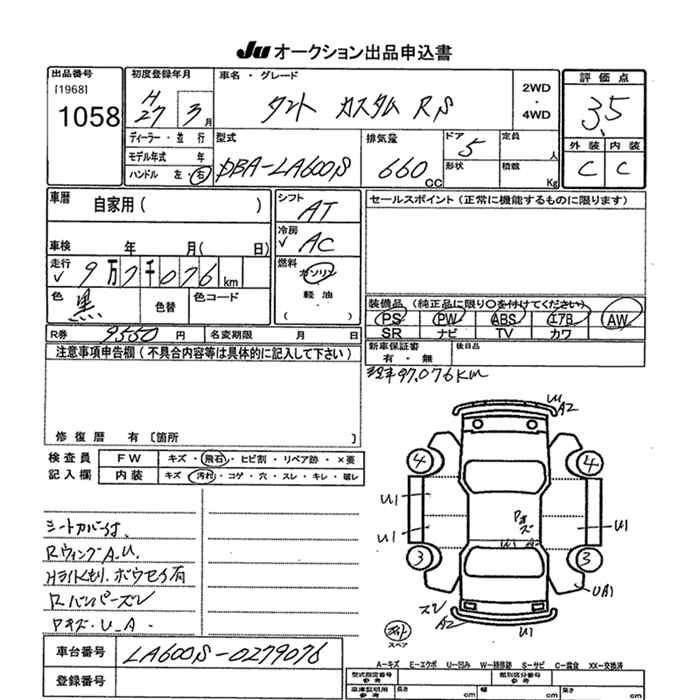 Ju オークション出品申込書
出品番号 [1968] 1058
初度登録年月 H27 3月
車名・グレード タント カスタム RS
2WD・4WD
評価点 3.5
外装 C 内装 C
ディーラー・並行
モデル年式 年
ハンドル 左・右
型式 DBA-LA600S
排気量 660cc
ドア 5
形状
定員 人
積数 Kg
車歴 自家用( )
車検 年 月( 日)
走行 9万7千076km
色 黒 色替 色コード
シフト AT
冷房 AC
燃料 ガソリン 軽油 ( )
セールスポイント(正常に機能するものに限ります)
装備品(純正品に限り○を付けてください)
PS PW ABS エアB AW
SR ナビ TV カワ
R券 9550円 名変期限 月 日
新車保証書 有・無 後日品
注意事項申告欄(不具合内容等は具体的に記入して下さい)
97,076km
修復歴 有 [箇所 ]
検査員記入欄
FW キズ・飛石・ヒビ割・リペア跡・×要
内装 キズ・汚れ・コゲ・穴・スレ・キレ・破レ
シートカバー付
RウィングA.U.
Rバンパーズレ
U A2
4 4
U1 U1
U1 U1
3 3
UA1
ズレ A2 U1
スペア
A-キズ E-エクボ U-凹み W-補修跡 S-サビ C-腐食 XX-交換済
車台番号 LA600S-0279076
登録番号
型式指定番号 参考 類別区分番号 参考
車庫証明用 参考 長さ cm 幅 cm 高さ cm